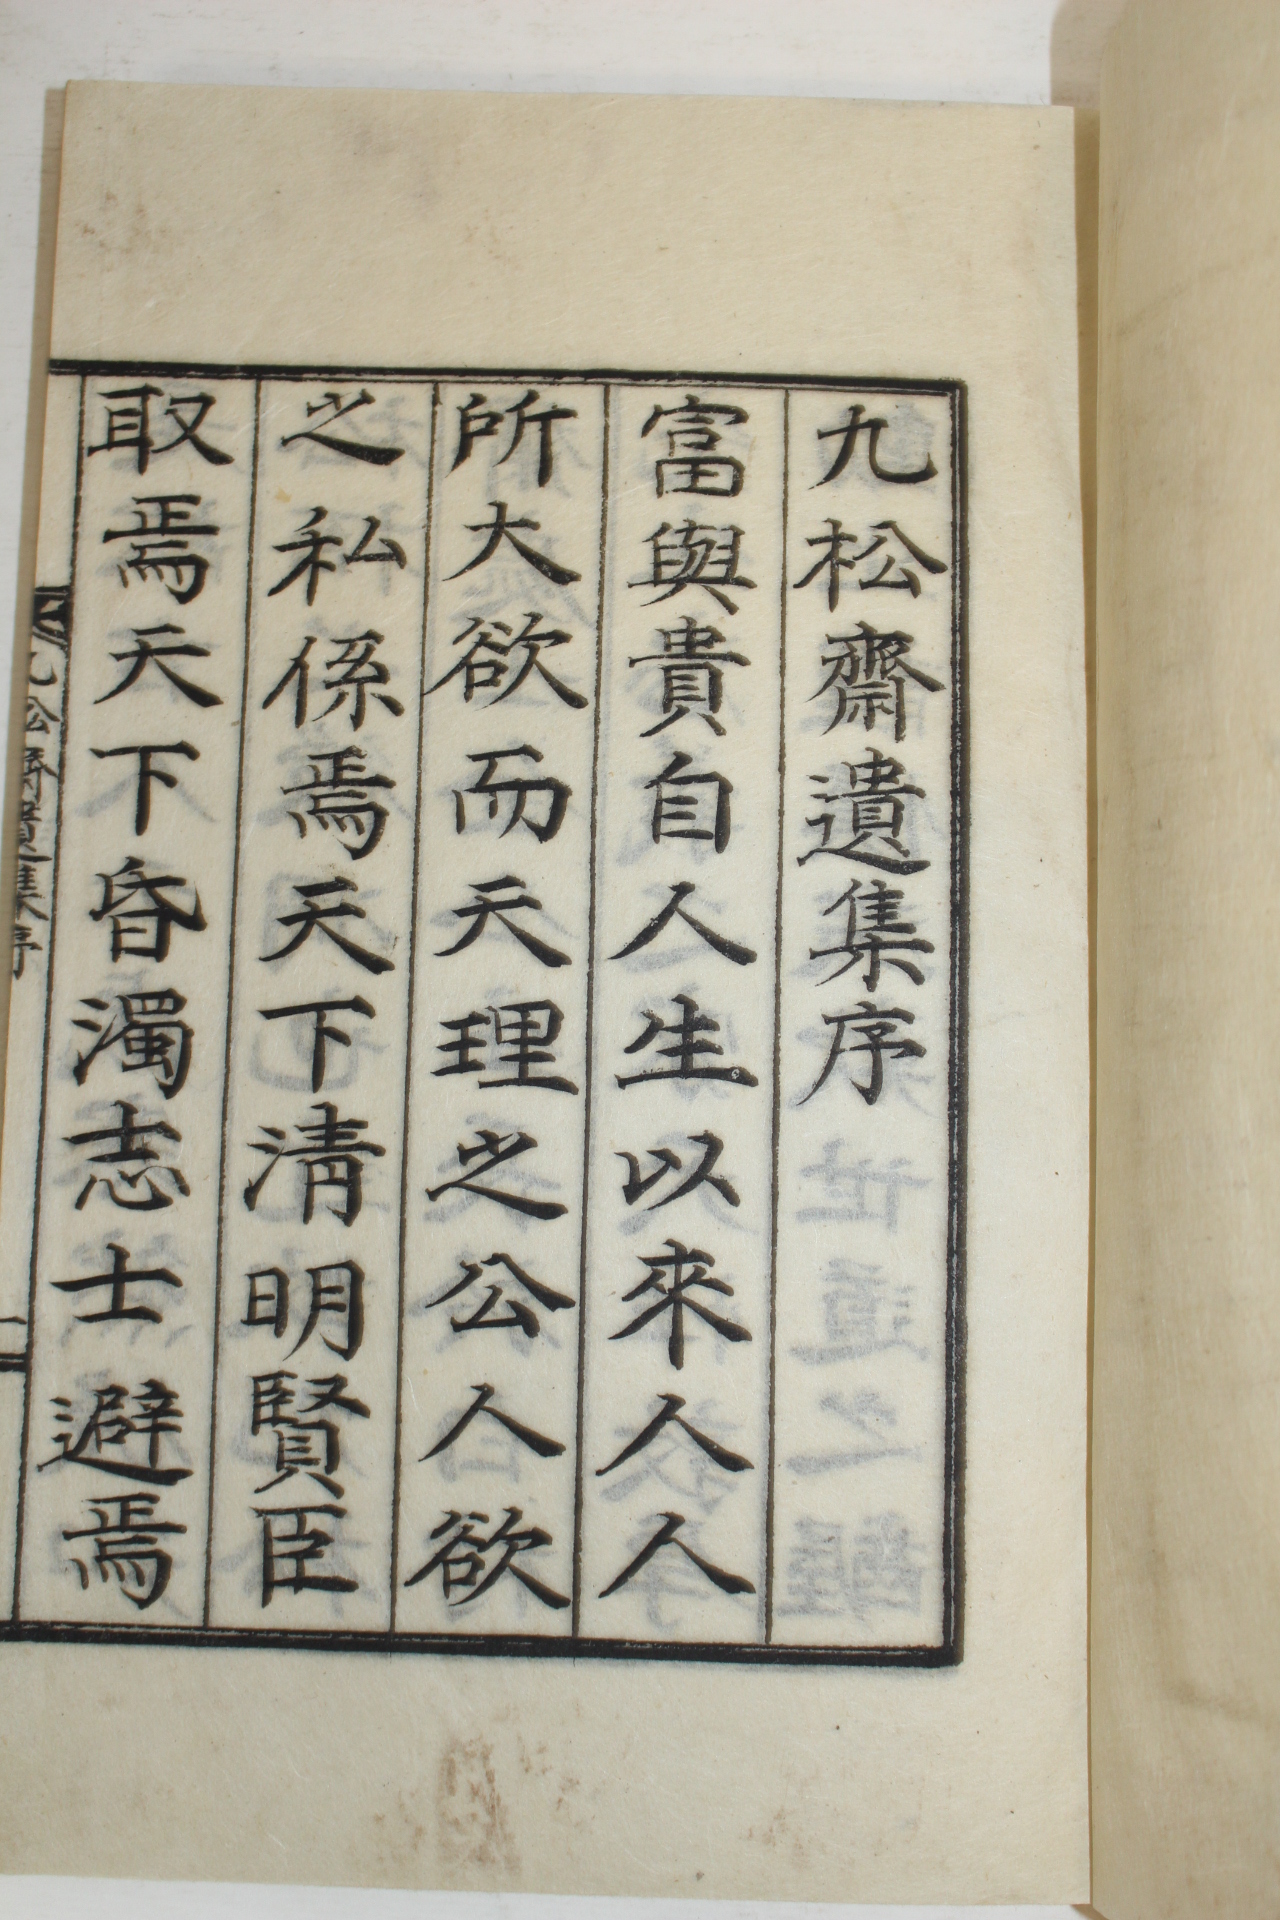 九松齋遺集序
富與貴自人生以來人人
所大欲而天理之公人欲
之私係焉天下淸明賢臣
取焉天下昏濁志士避焉
九松齋遺集序
一